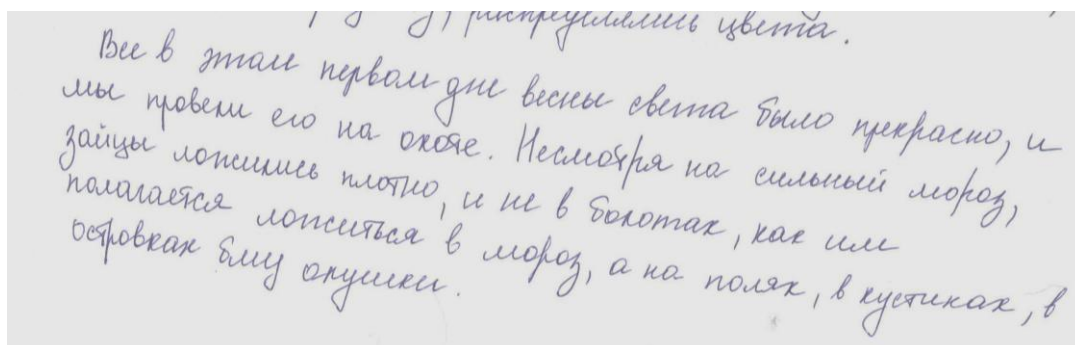 распределялись цвета.
Все в этом первом дне весны света было прекрасно, и
мы провели его на охоте. Несмотря на сильный мороз,
зайцы ложились плотно, и не в болотах, как им
полагается ложиться в мороз, а на полях, в кустиках, в
островках близ опушки.